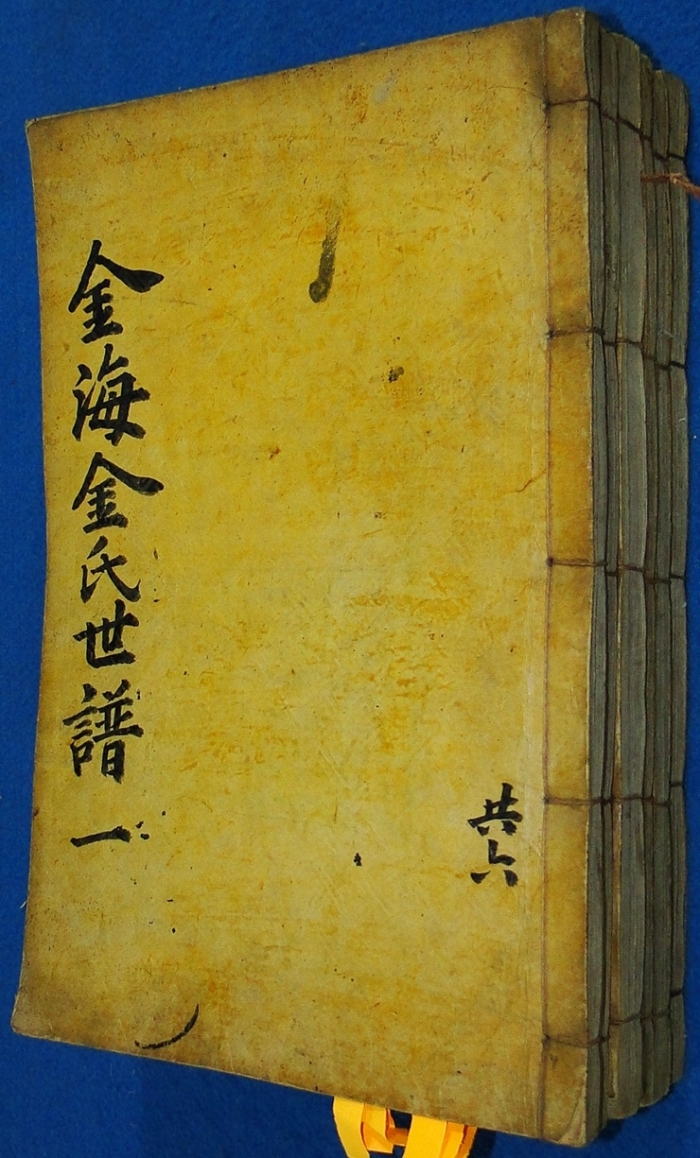 金海金氏世譜 一
共六